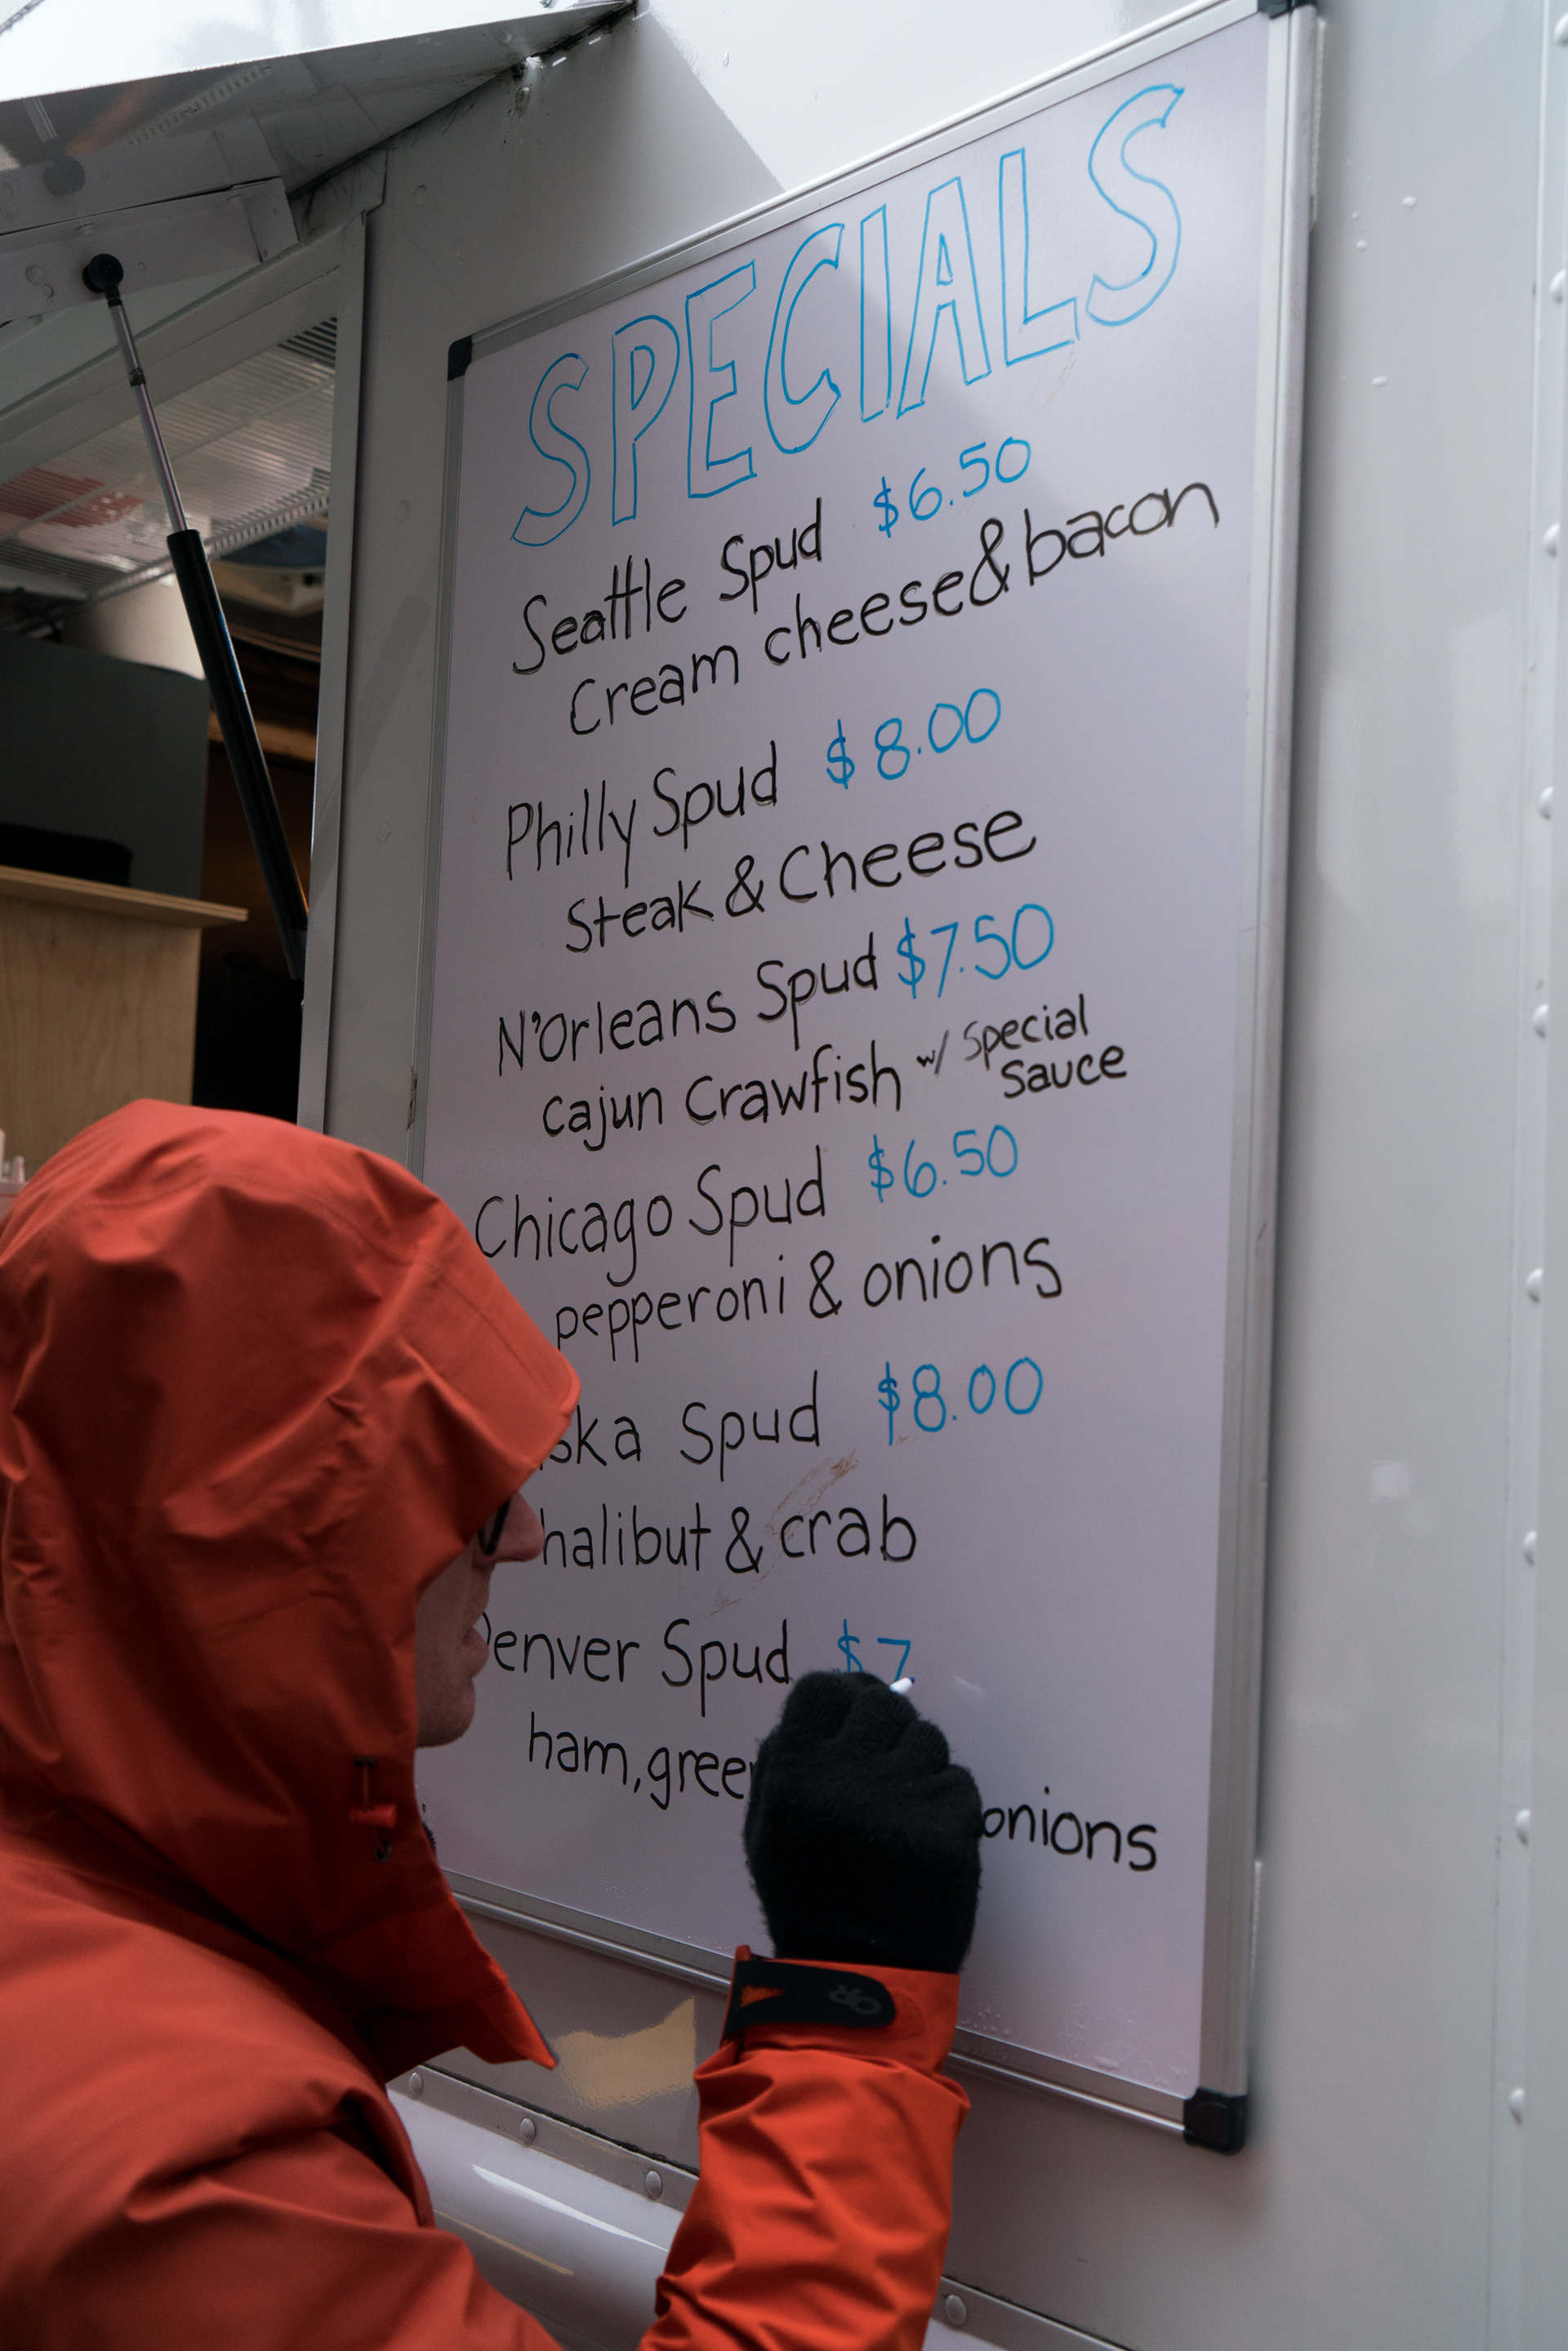 SPECIALS
Seattle Spud $6.50
Cream cheese & bacon
Philly Spud $8.00
Steak & Cheese
N'Orleans Spud $7.50
Cajun Crawfish w/ Special
Sauce
Chicago Spud $6.50
pepperoni & onions
Spud $8.00
halibut & crab
Denver Spud $7.
ham, onions
OR